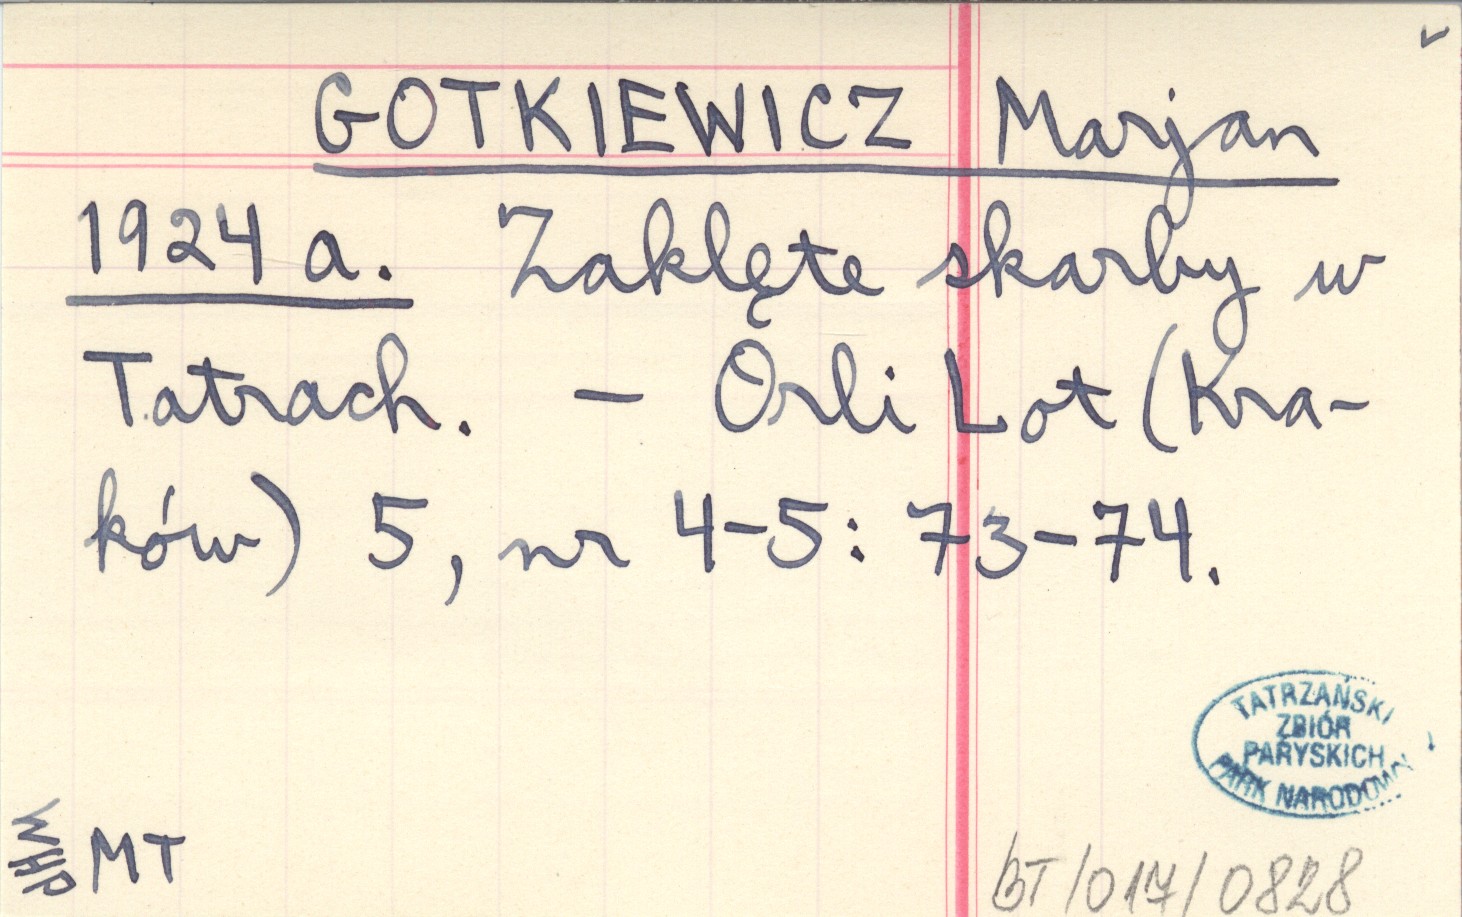 GOTKIEWICZ Marjan
1924 a. Zaklęte skarby w
Tatrach. – Orli Lot (Kra-
ków) 5, nr 4-5: 73-74.
TATRZAŃSKI
ZBIÓR
PARYSKICH
PARK NARODOWY
WHP
MT
BT/017/0828